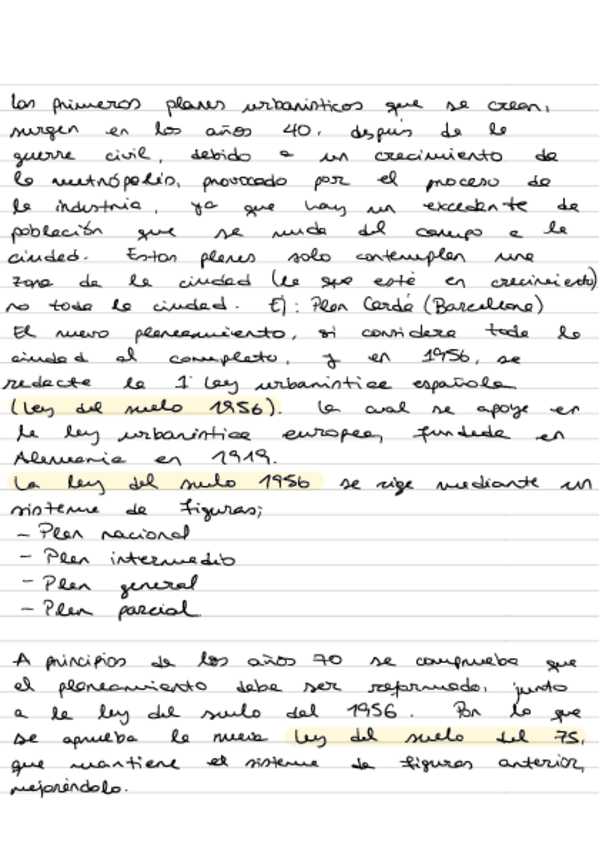 Los primeros planes urbanísticos que se crean,
surgen en los años 40, después de la
guerra civil, debido a un crecimiento de
la metrópolis, provocado por el proceso de
la industria, ya que hay un excedente de
población que se muda del campo a la
ciudad. Estos planes solo contemplan una
zona de la ciudad (la que esté en crecimiento)
no toda la ciudad. Ej: Plan Cerdá (Barcelona)
El nuevo planeamiento, si considera toda la
ciudad al completo, y en 1956, se
redacta la 1ª Ley urbanística española
(Ley del suelo 1956). La cual se apoya en
la ley urbanística europea, fundada en
Alemania en 1919.
La Ley del suelo 1956 se rige mediante un
sistema de figuras;
- Plan nacional
- Plan intermedio
- Plan general
- Plan parcial
A principios de los años 70 se comprueba que
el planeamiento debe ser reformado, junto
a la ley del suelo del 1956. Por lo que
se aprueba la nueva Ley del suelo del 75,
que mantiene el sistema de figuras anterior,
mejorándolo.